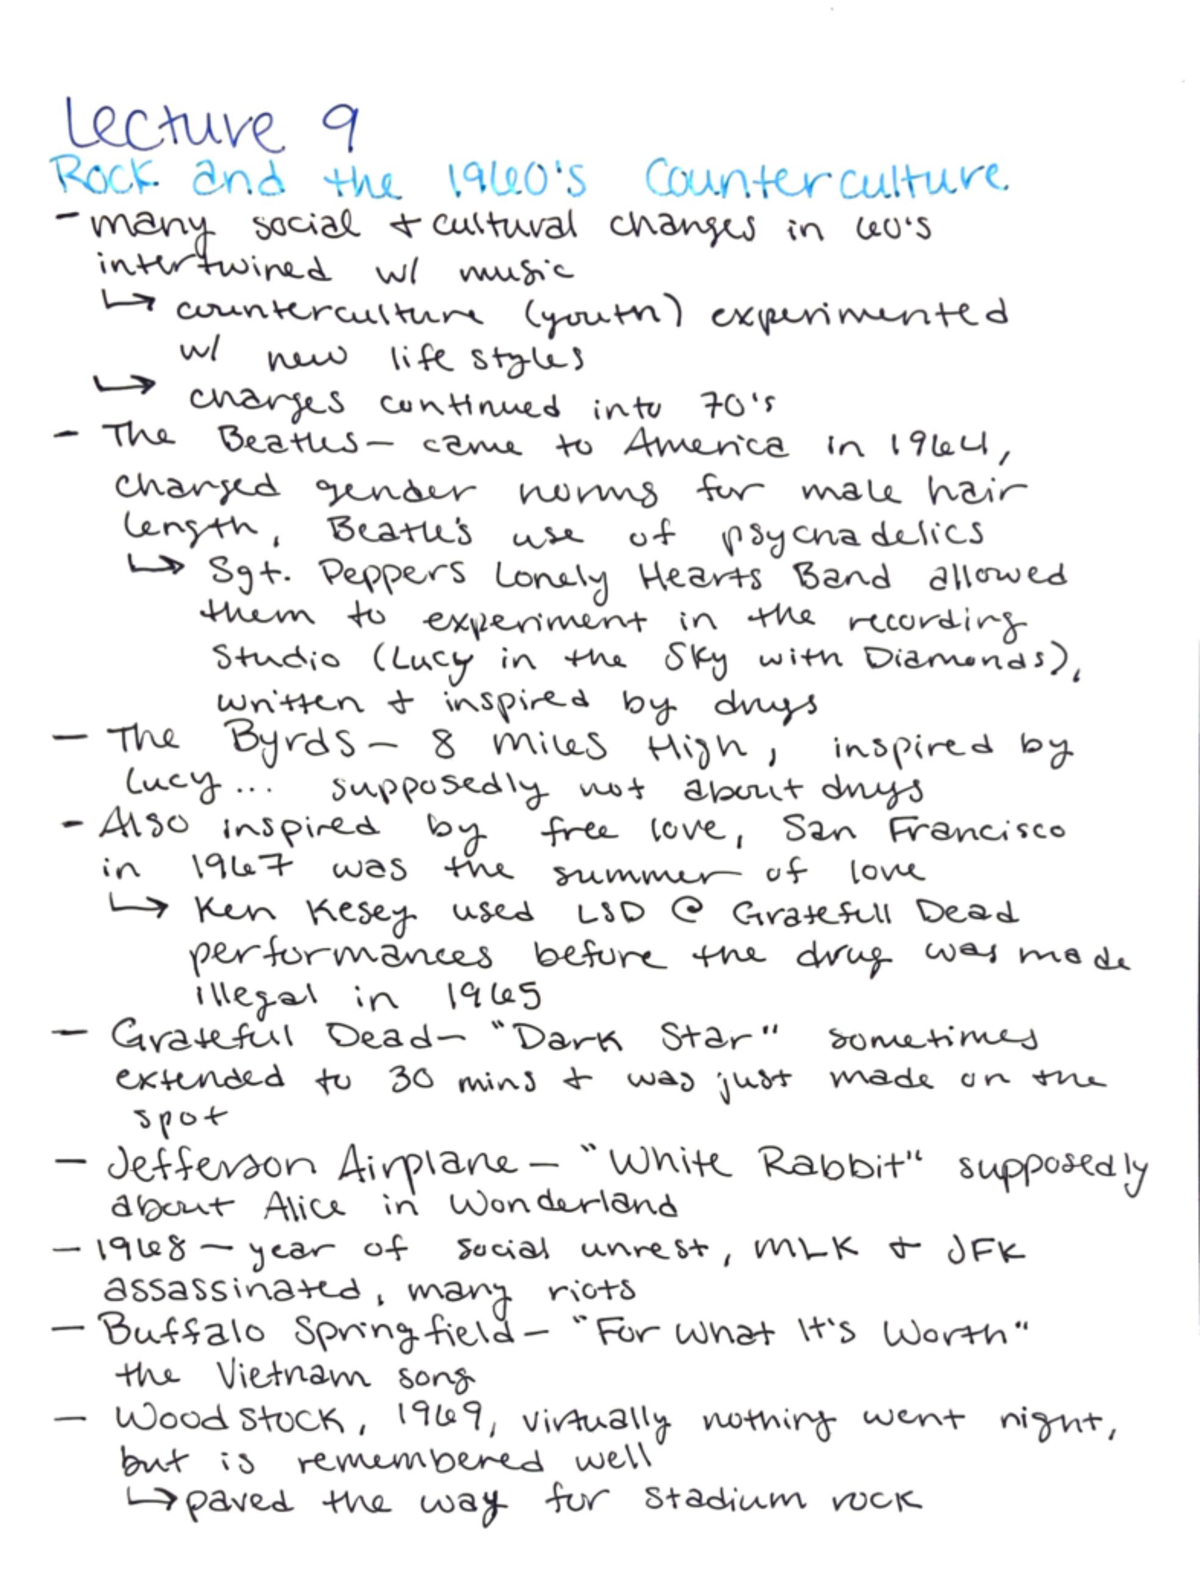 Lecture 9
Rock and the 1960's Counterculture
- many social + cultural changes in 60's
intertwined w/ music
↳ counterculture (youth) experimented
w/ new life styles
↳ changes continued into 70's
- The Beatles - came to America in 1964,
changed gender norms for male hair
length, Beatle's use of psychadelics
↳ Sgt. Peppers Lonely Hearts Band allowed
them to experiment in the recording
studio (Lucy in the Sky with Diamonds),
written + inspired by drugs
- The Byrds - 8 Miles High, inspired by
Lucy... supposedly not about drugs
- Also inspired by free love, San Francisco
in 1967 was the summer of love
↳ Ken Kesey used LSD @ Gratefull Dead
performances before the drug was made
illegal in 1965
- Gratefull Dead - "Dark Star" sometimes
extended to 30 mins + was just made on the
spot
- Jefferson Airplane - "White Rabbit" supposedly
about Alice in Wonderland
- 1968 - year of social unrest, MLK + JFK
assassinated, many riots
- Buffalo Springfield - "For What It's Worth"
the Vietnam song
- Woodstock, 1969, virtually nothing went right,
but is remembered well
↳ paved the way for stadium rock